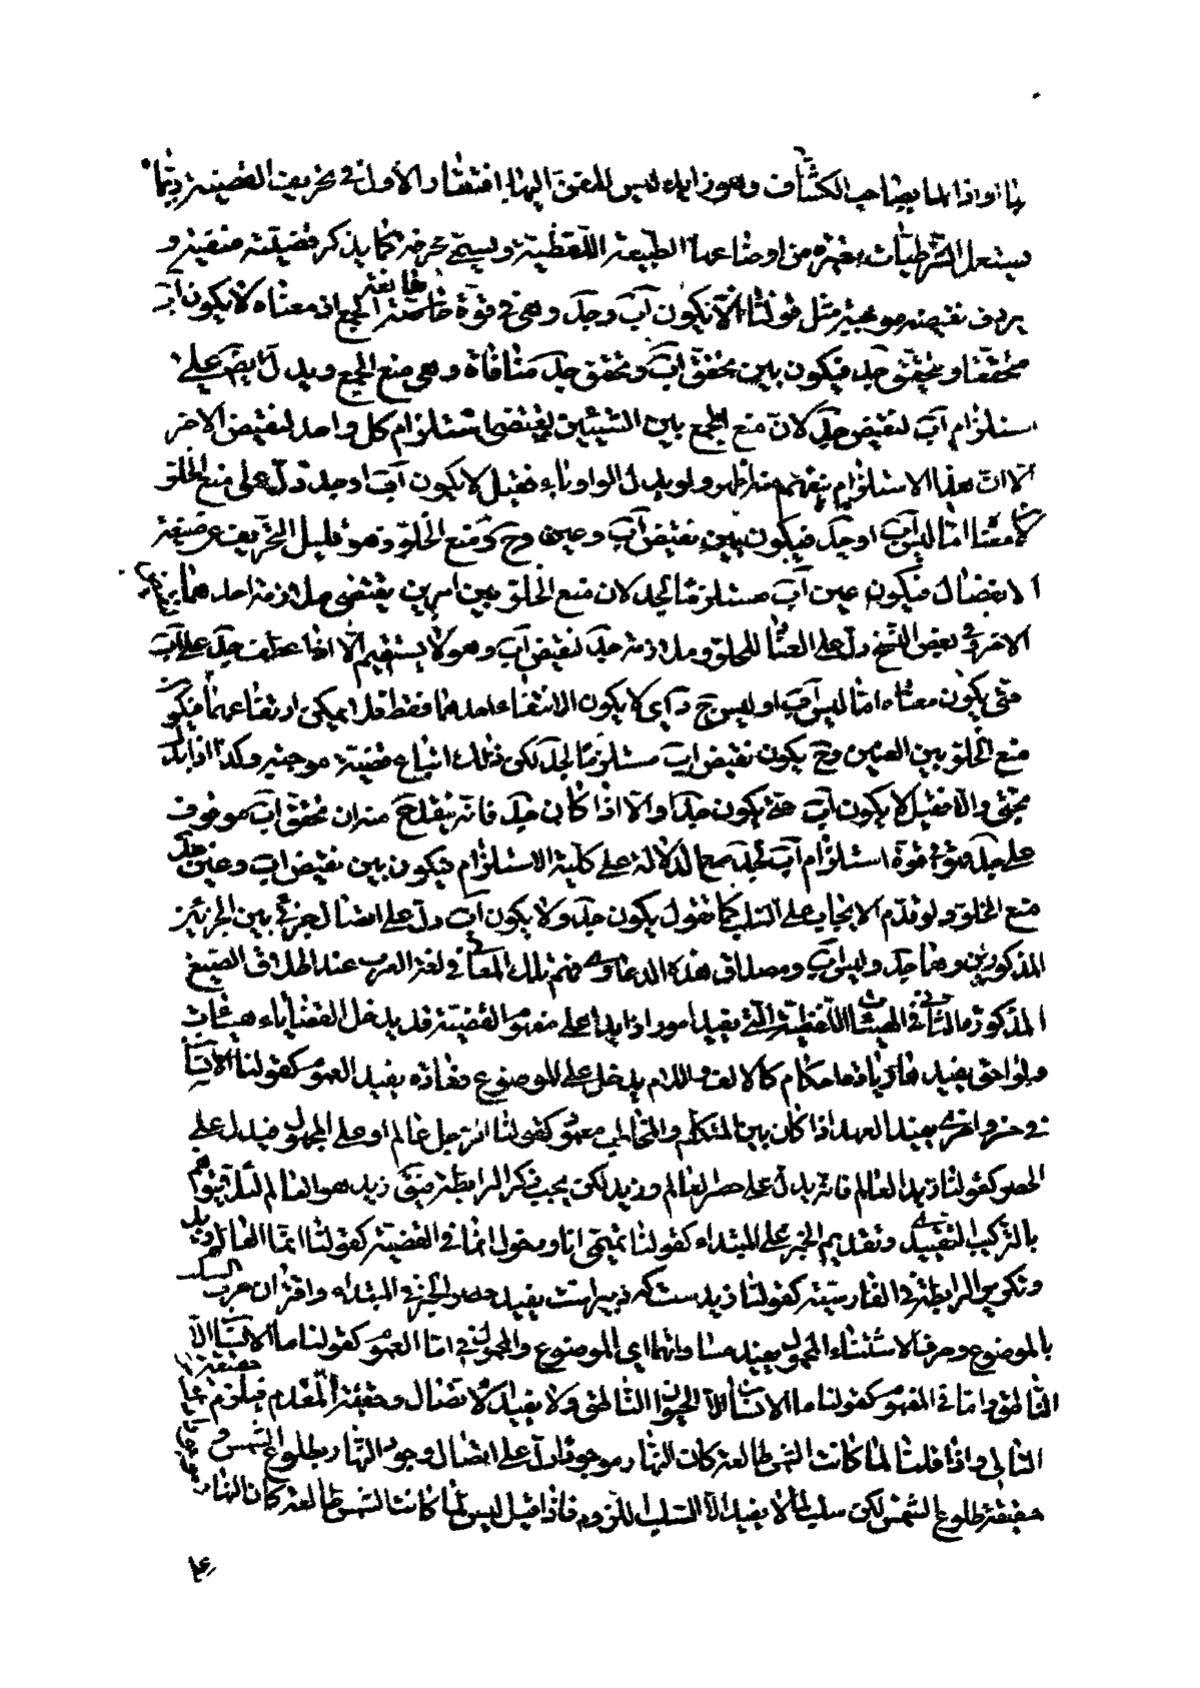 صاحب الكشاف وهو زايد ليس للمقوّ اليها افتقار الأول في تحريف القضية ربّما
يستعمل الشرطيات بغيره من اوضاعها الطبيعة اللفظية ويسمّى محرفة كما يذكر قضيّة منفية و
يردف نقيضه موجبة مثل قولنا لا يكون اب وجد وهي في قوّة مانعة الجمع اذ معناه لا يكون اب
متحققا ويتحقق جد فيكون بين تحقق اب وتحقق جد منافاة وهي منع الجمع ويدل ايضا على
استلزام اب لنقيض جد لان منع الجمع بين الشيئين يقتضى استلزام كل واحد لنقيض الاخر
الا ان هذا الاستلزام يفهم منه اظهر ولو بدل الواو باو فقيل لا يكون اب او جد دل على منع الخلو
اما ليس اب او جد فيكون بين نقيض اب وعين جد منع الخلو وهو قليل التحريف عن صيغة
الانفصال فيكون عين اب مستلزما لجد لان منع الخلو بين امرين يقتضى ملازمة احدهما
الاخر وفي بعض النسخ دل على العناد للخلو وملازمة جد لنقيض اب وهو لا يستقيم الا اذا عطف جد على اب
حتى يكون معناه اما ليس اب او ليس جد اي لا يكون الا انتفاء احدهما فقط فلا يمكن ارتفاعهما فيكون
منع الخلو بين العينين وح يكون نقيض اب مستلزما لجد لكن ذلك اتباع قضية موجبة وكذا اذا بدل
بحتى والا فقيل لا يكون اب حتى يكون جد او الا اذا كان جد فانه يفهم منه ان تحقق اب موقوف
على جد فهو في قوة استلزام اب لجد مع الدلالة على كلية الاستلزام فيكون بين نقيض اب وعين جد
منع الخلو ولو قدم الايجاب على السلب كما نقول يكون جد ولا يكون اب دل على اتصال جزئي بين الجزئين
المذكورين وهما جد وليس اب ومصداق هذه الدعاوى فهم تلك المعاني في لغة العرب عند اطلاق الصيغ
المذكورة الثاني في الهيئات اللفظية التي يفيد امورا زايدة على مفهوم القضية قد يدخل القضايا هيئات
ولواحق يفيد زيادة احكام كالالف واللام يدخل على الموضوع فتارة يفيد العموم كقولنا الانسان
في خسر واخرى يفيد العهد اذا كان بين المتكلم والمخاطب معهود كقولنا الرجل عالم او على المحمول فيدل على
الحصر كقولنا زيد العالم فانه يدل على حصر العالم في زيد لكن يجب ذكر الرابطة فيقال زيد هو العالم لئلا يتوهم
بالتركيب التقييدى وتقديم الخبر على المبتداء كقولنا تميمي انا ودخول انما في القضية كقولنا انما العالم زيد
وتكوين الرابطة في الفارسية كقولنا زيدست كه دبيراست يفيد حصر الخبر في المبتداء واقتران حرف السلب
بالموضوع وحرف الاستثناء بالمحمول يفيد مساواتهما اي الموضوع والمحمول اما في العموم كقولنا ما الانسان الا
الناطق واما في المفهوم كقولنا ما الانسان الا الحيوان الناطق ولما يفيد الاتصال وحقيقة المقدم فيلزم حقيقة
التالي واذا قلنا لما كانت الشمس طالعة كان النهار موجودا دل على اتصال وجود النهار بطلوع الشمس و
حقيقة طلوع الشمس لكن سلب لما لا يفيد الا السلب اللزوم فاذا قيل ليس لما كانت الشمس طالعة كان النهار